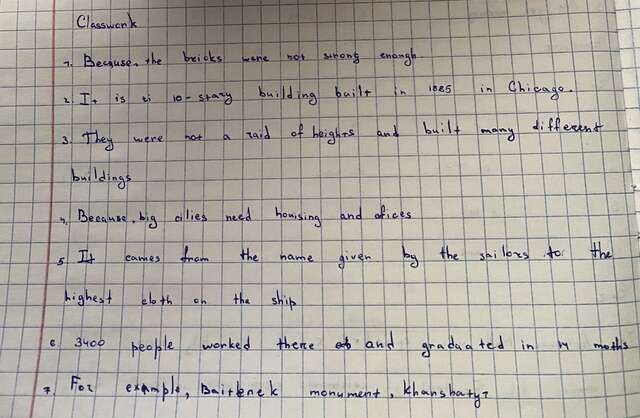 Classwork
1. Because, the bricks were not strong enough.
2. It is ti 10-story building built in 1885 in Chicago.
3. They were not a raid of heights and built many different
buildings
4. Because, big cilies need housing and ofices
5 It cames from the name given by the sailors for the
highest cloth on the ship
6 3400 people worked there and graduated in 14 moths
7. For example, Baiterek monument, Khanshaty?